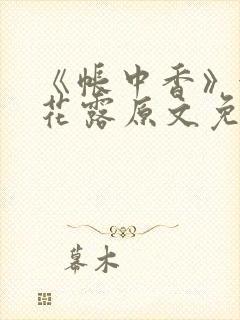 《帐中香》
花露原文免
幕木